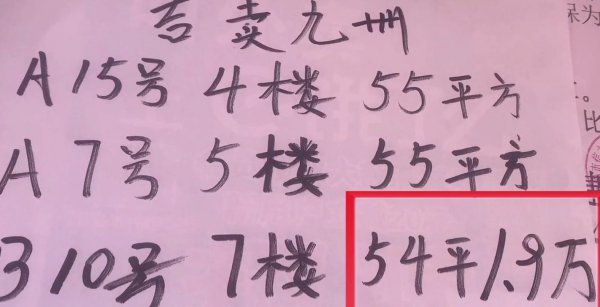 吉卖九州
A15号 4楼 55平方
A7号 5楼 55平方
B10号 7楼 54平1.9万
保为
。
比